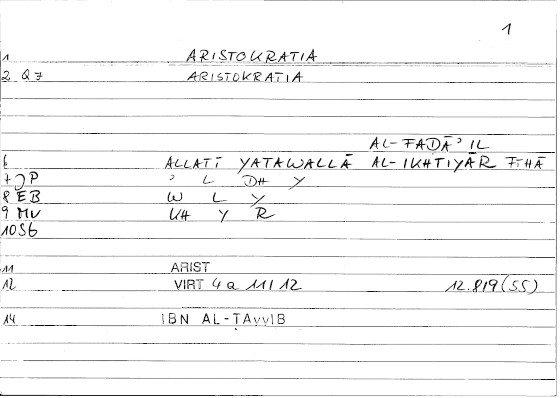 1
1 ARISTOKRATIA
2 Q7 ARISTOKRATIA
AL-FAḌĀ'IL
6 ALLATĪ YATAWALLĀ AL-IKHTIYĀR FĪHĀ
7 JP ' L DH Y
8 EB W L Y
9 MV KH Y R
10 S6
11 ARIST
12 VIRT 4 a 11/12 12.819(SS)
14 IBN AL-ṬAyyIB